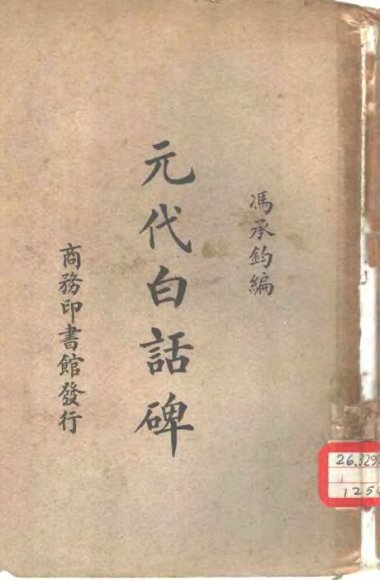 馮承鈞編
元代白話碑
商務印書館發行
26.329
125